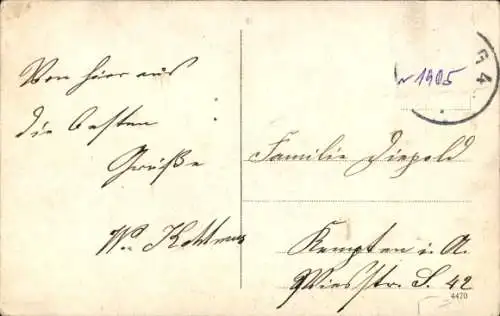 Von hier aus
die besten
Grüße
W. Kottmus
54
v 1905
Familie Diepold
Kempten i. A.
Wiesstr. S. 42
4470